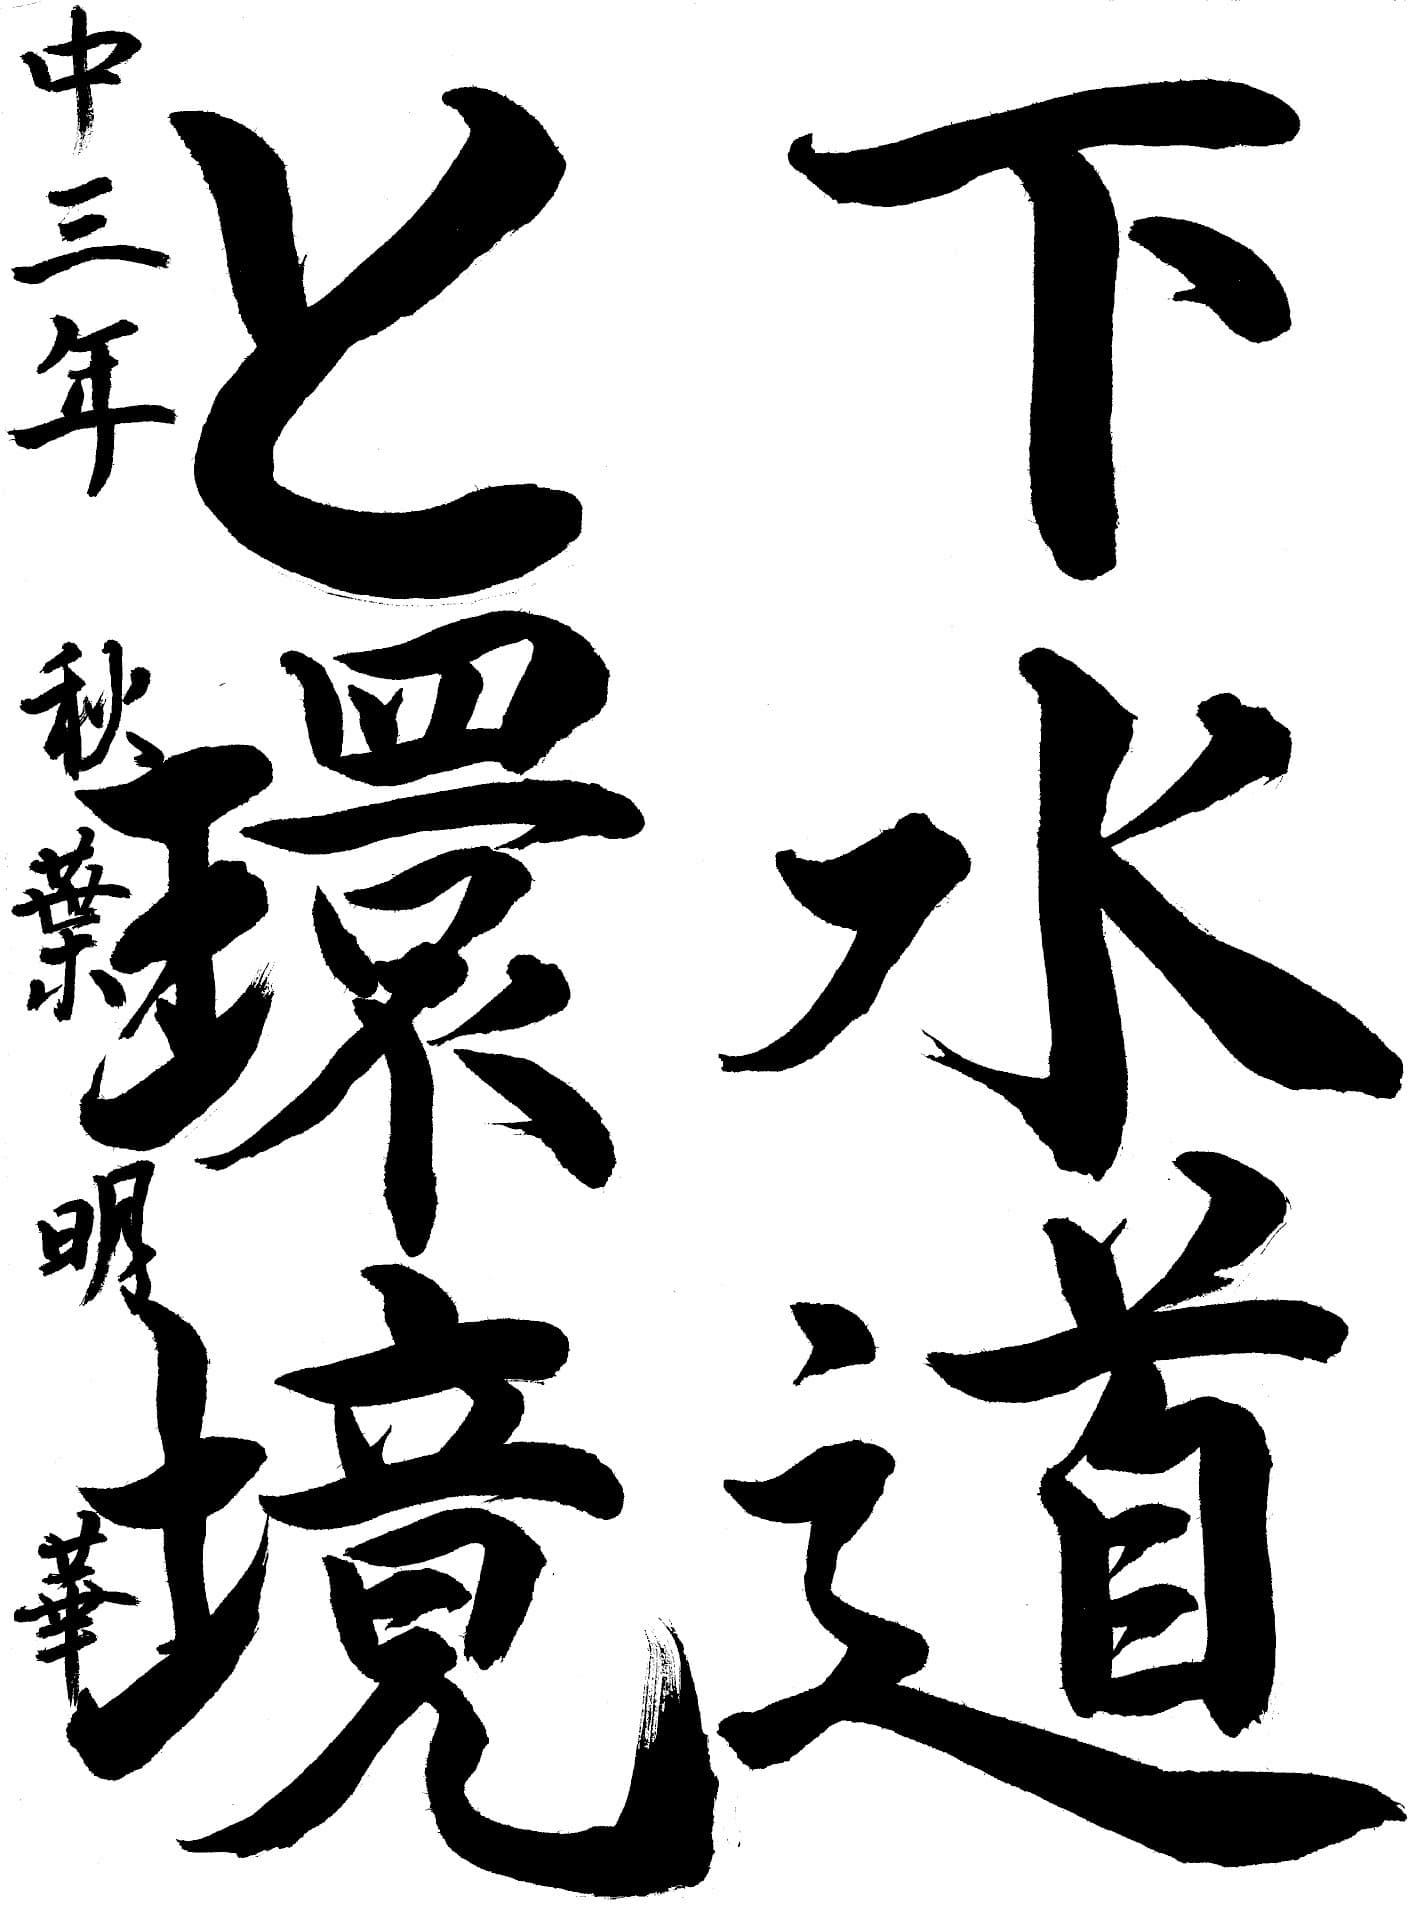 下水道
と環境
中三年 秋葉明華